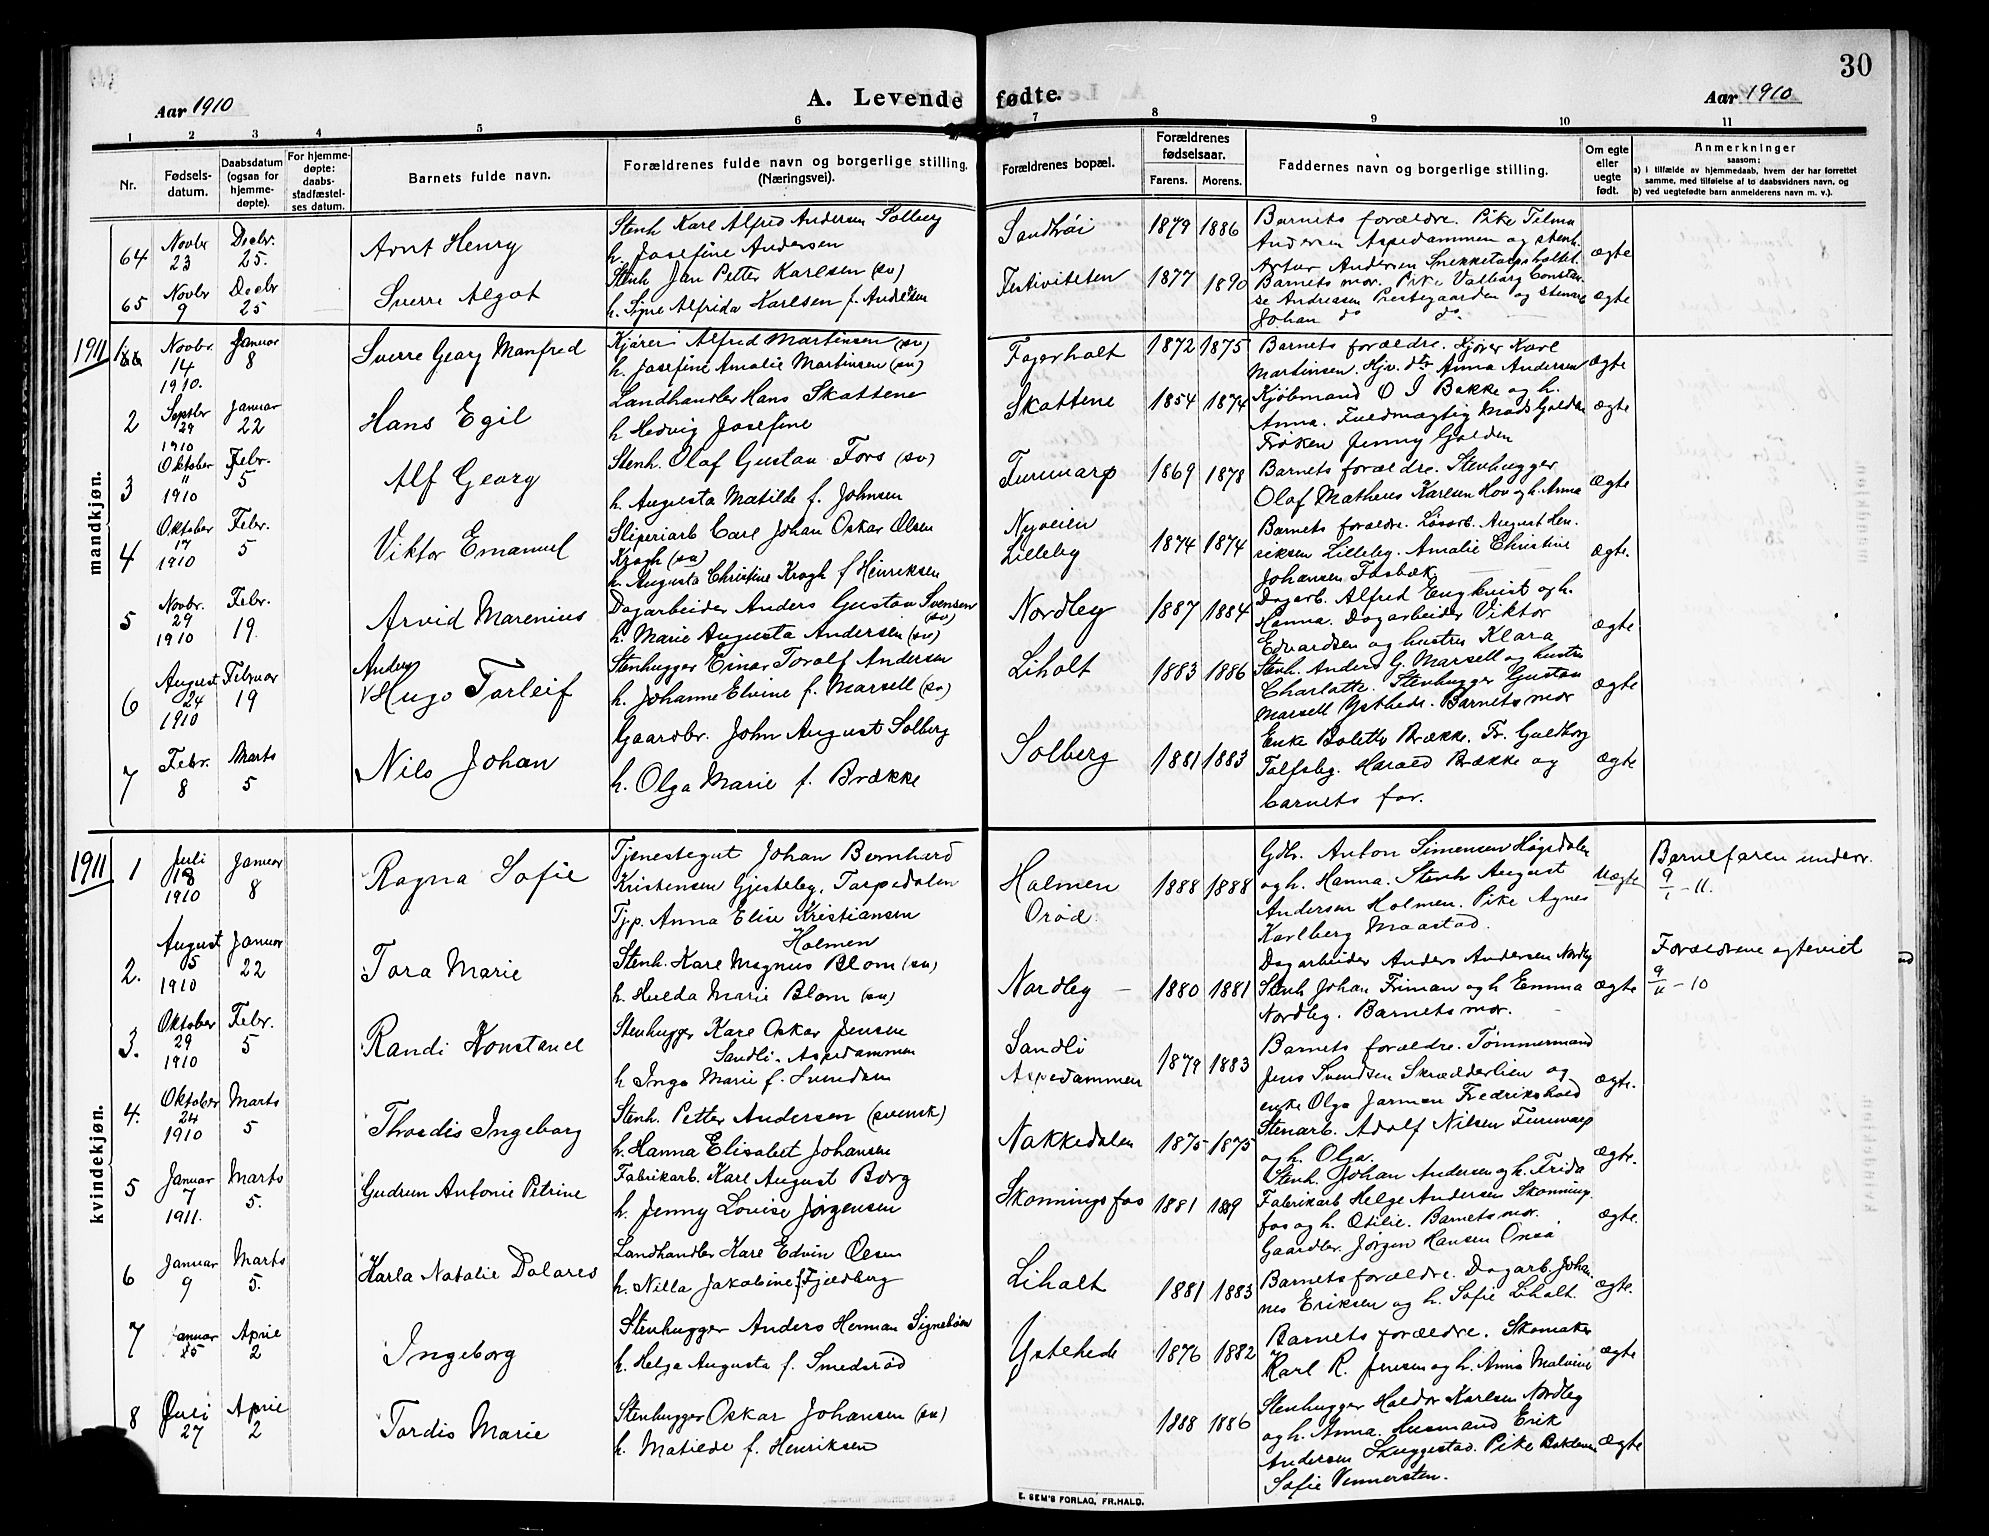 30
Aar 1910
A. Levende fødte.
Aar 1910
1 2 3 4 5 6 7 8 9 10 11
Nr.
Fødsels-
datum.
Daabsdatum
(ogsaa for
hjemme-
døpte).
For hjemme-
døpte:
daabs-
stadfæstel-
ses datum.
Barnets fulde navn.
Forældrenes fulde navn og borgerlige stilling.
(Næringsvei).
Forældrenes bopæl.
Forældrenes
fødselsaar.
Farens. Morens.
Faddernes navn og borgerlige stilling.
Om egte
eller
uegte
født.
Anmerkninger
saasom:
a) i tilfælde av hjemmedaab, hvem der har forrettet
samme, med tilføielse af to daabsvidners navn, og
b) ved uegtefødte barn anmelderens navn m. v.).
mandkjøn.
64
Novbr
23
Decbr.
25.
Arnt Henry
Stenh Karl Alfred Andersen Solberg
h. Josefine Andersen
Sandhøi
1879 1886
Barnets forældre. Pike Telma
Andersen Aspedammen og stenh.
Artur Andersen Snekketorpholtet
ægte
65
Novbr
9
Decbr
25
Sverre Algot
Stenh Jan Petter Karlsen (sv)
h. Signe Alfrida Karlsen f. Andersen
Festiviteten
1877 1890
Barnets mor. Pike Valborg Constan
se Andreasen Prestegaarden og stenarb
Johan do do
ægte
1911
1
Novbr.
14
1910.
Januar
8
Sverre Georg Manfred
Kjører Alfred Martinsen (sv)
h. Josefine Amalie Martinsen (sv)
Fagerholt
1872 1875
Barnets forældre. Kjører Karl
Martinsen. Hjv. dtr Anna Andersen
ægte
2
Septbr
29
1910
Januar
22
Hans Egil
Landhandler Hans Skattene
h Hedvig Josefine
Skattene
1854 1874
Kjøbmand O J Bakke og h.
Anna. Fuldmægtig Mads Golden
Frøken Jenny Golden
ægte
3
Oktober
11
1910
Febr.
5
Alf Georg
Stenh. Olaf Gustav Fors (sv)
h. Augusta Matilde f. Johnsen
Furuvarp
1869 1878
Barnets forældre. Stenhugger
Olaf Matheus Karlsen Hov og h. Anna
ægte
4
Oktober
17
1910
Febr.
5
Viktor Emanuel
Sliperiarb Carl Johan Oskar Olsen
Krogh (sv)
h. Augusta Christine Krogh f Henriksen
Nyveien
Lilleby
1874 1874
Barnets forældre. Løsarb. August Hen.
riksen Lilleby. Amalie Christine
Johansen Fosbæk
ægte.
5
Novbr.
29
1910
Febr.
19.
Arvid Marenius
Dagarbeider Anders Gustav Svensen
(sv)
h. Marie Augusta Andersen (sv)
Nordley
1887 1884
Dagarb. Alfred Engkvist og h.
Hanna. Dagarbeider Viktor
Edvardsen og hustru Klara
ægte
6
August
24
1910
Februar
19
Anders
Hugo Torleif
Stenhugger Einar Toralf Andersen
h. Johanne Elvine f. Marsell (sv)
Liholt
1883 1886
Stenh. Anders G. Marsell og hustru
Charlotte. Stenhugger Gustav
Marsell Ystehede. Barnets mor
ægte
7
Febr.
8
Marts
5
Nils Johan
Gaardbr. John August Solberg
h. Olga Marie f. Brække
Solberg
1881 1883
Enke Bolette Brække. Fr. Guldborg
Tolfsby. Harald Brække og
barnets far.
ægte
kvindekjøn.
1911
1
Juli
18
1910
Januar
8
Ragna Sofie
Tjenestegut Johan Bernhard
Kristensen Gjesteby, Torpedalen
Tjp. Anna Elise Kristiansen
Holmen
Holmen
Orød
1888 1888
Gdbr. Anton Simensen Høgedalen
og h. Hanna. Stenh August
Andersen Holmen. Pike Agnes
Karlberg Maastad.
Uægte
Barnefaren underr.
9/1 - 11.
2.
August
5
1910
Januar
22
Tora Marie
Stenh. Karl Magnus Blom (sv)
h. Hulda Marie Blom (sv)
Nordley
1880 1881
Dagarbeider Anders Andersen Nordby
Stenh Johan Friman og h Emma
Nordley. Barnets mor.
ægte
Forældrene egteviet
9/11 - 10
3.
Oktober
29
1910
Febr.
5
Randi Konstance
Stenhugger Karl Oskar Jensen
Sandli. Aspedammen
h Inga Marie f. Svendsen
Sandli
Aspedammen
1879 1883
Barnets forældre. Tømmermand
Jens Svendsen Skrædderlien og
enke Olga Jarmen Fredrikshald
ægte.
4.
Oktober
24
1910
Marts
5
Thordis Ingeborg
Stenh. Petter Andersen (svensk)
h. Hanna Elisabet Johansen
Nakkedalen
1875 1875
Stenarb. Adolf Nilsen Furuvarp
og h. Olga.
ægte.
5
Januar
7
1911.
Marts
5.
Gudrun Antonie Petrine
Fabrikarb. Karl August Borg
h. Jenny Lovise Jørgensen
Skonningsfos
1881 1889
Stenh. Johan Andersen og h. Frida
Fabrikarb Helge Andersen Skonning.
fos og h. Otilie. Barnets mor.
Gaardbr. Jørgen Hansen Orsa
ægte.
6
Januar
9
Marts
5.
Karla Natalie Dolores
Landhandler Karl Edvin Olsen
h. Nilla Jakobine f Fjeldberg
Liholt
1881 1883
Barnets forældre. Dagarb. Johan.
nes Eriksen og h. Sofie Liholt.
ægte.
7
Januar
25
April
2
Ingeborg
Stenhugger Anders Herman Signebøen
h. Helga Augusta f. Smedsrød
Ystehede
1876 1882
Barnets forældre. Skomaker
Karl R. Jensen og h. Anna Malvine
ægte
8
Juli
27
April
2
Tordis Marie
Stenhugger Oskar Johansen (sv)
h. Matilde f. Henriksen
1888 1886
Stenhugger Haldor Karlsen Nordley
og h. Anna. Husmand Erik
Andersen Skuggestad. Pike
Sofie Vennersten.
ægte
E. SEM'S FORLAG, FR.HALD.